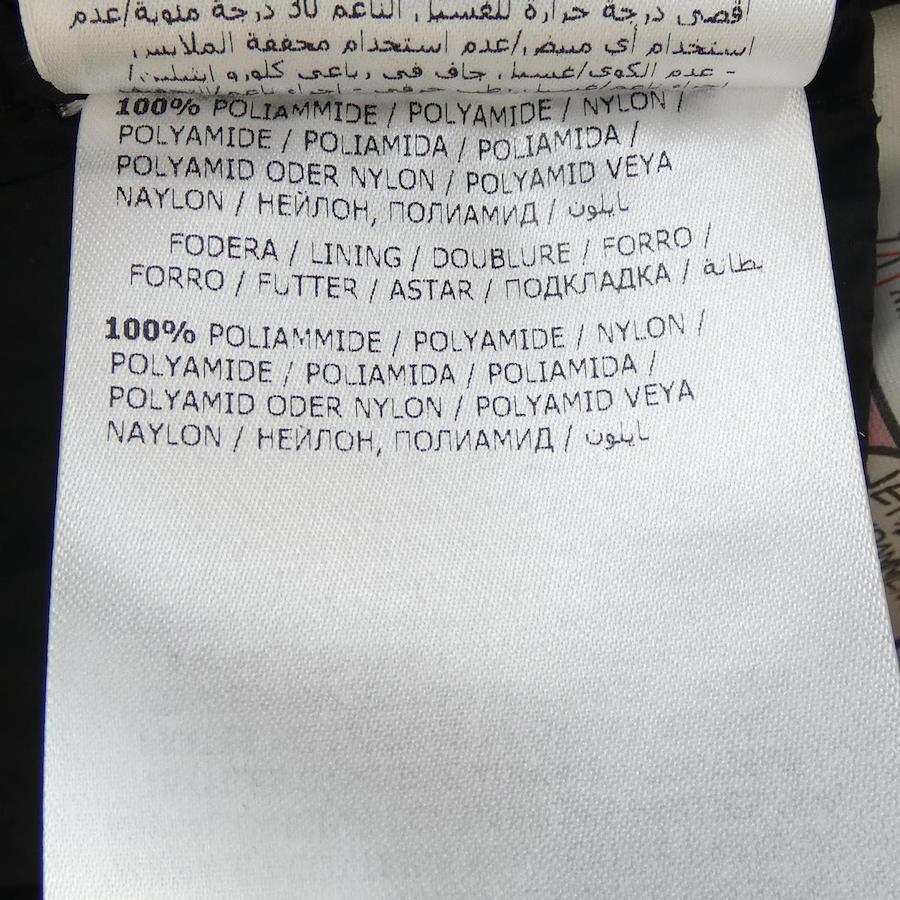 أقصى درجة حرارة للغسيل الناعم 30 درجة مئوية/عدم
استخدام أي مبيض/عدم استخدام مجففة الملابس
- عدم الكوي/غسيل جاف في رباعي كلورو إيثيلين/
100% POLIAMMIDE / POLYAMIDE / NYLON /
POLYAMIDE / POLIAMIDA / POLIAMIDA /
POLYAMID ODER NYLON / POLYAMID VEYA
NAYLON / НЕЙЛОН, ПОЛИАМИД / نايلون
FODERA / LINING / DOUBLURE / FORRO /
FORRO / FUTTER / ASTAR / ПОДКЛАДКА / بطانة
100% POLIAMMIDE / POLYAMIDE / NYLON /
POLYAMIDE / POLIAMIDA / POLIAMIDA /
POLYAMID ODER NYLON / POLYAMID VEYA
NAYLON / НЕЙЛОН, ПОЛИАМИД / نايلون